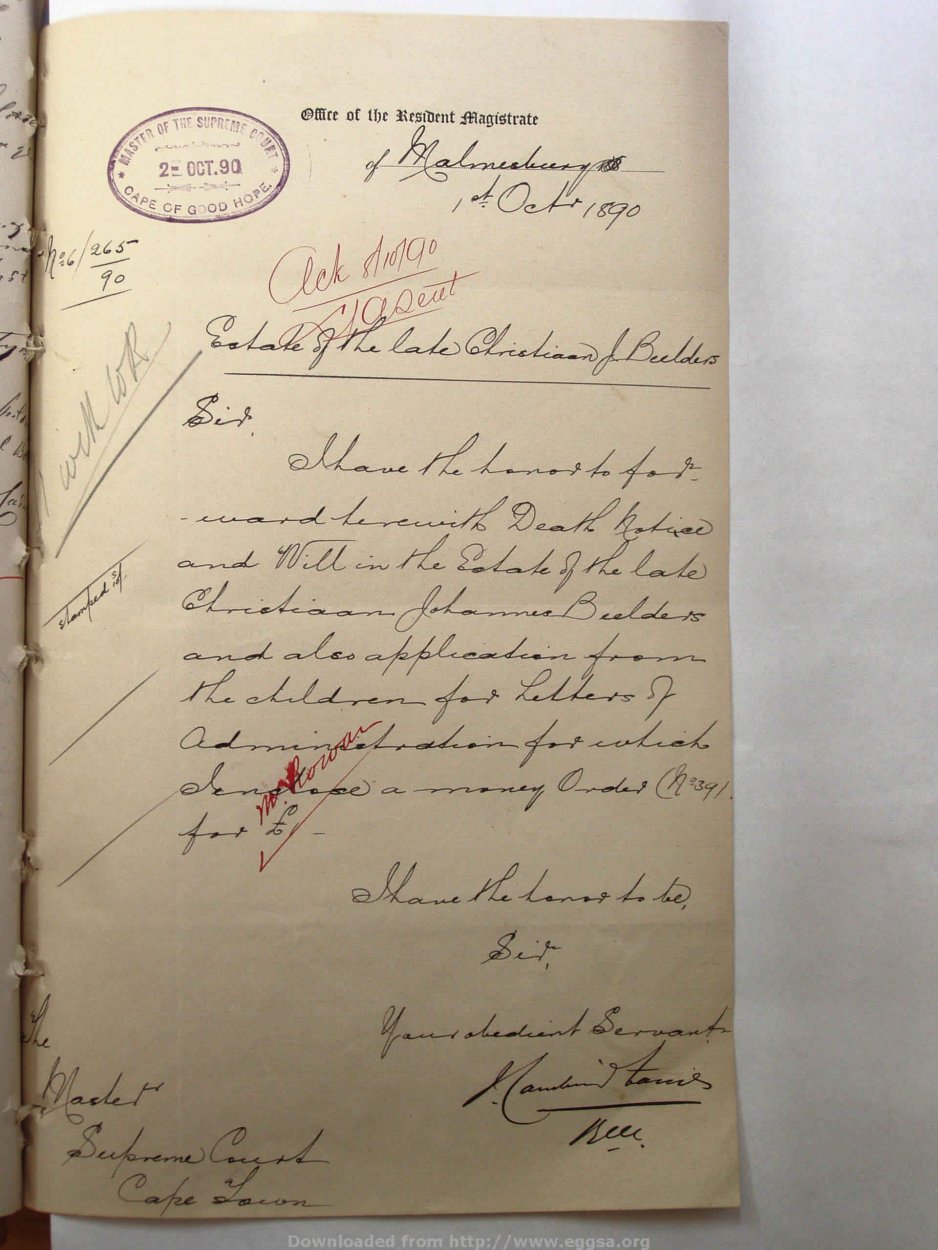 Office of the Resident Magistrate
of Malmesbury
1st Octr 1890
MASTER OF THE SUPREME COURT
2- OCT.90
CAPE OF GOOD HOPE
No 6/265
90
Ack 8/10/90
Estate of the late Christiaan J. Beelders
1 with
Sir,
I have the honor to for-
-ward herewith Death Notice
and Will in the Estate of the late
stamped
Christiaan Johannes Beelders
and also application from
the children for Letters of
Administration for which
Mr. Rowan
I enclose a money Order (No 391
for £1 -
I have the honor to be,
Sir,
Your obedient Servant
The
Master
Supreme Court
Cape Town
Downloaded from http://www.eggsa.org